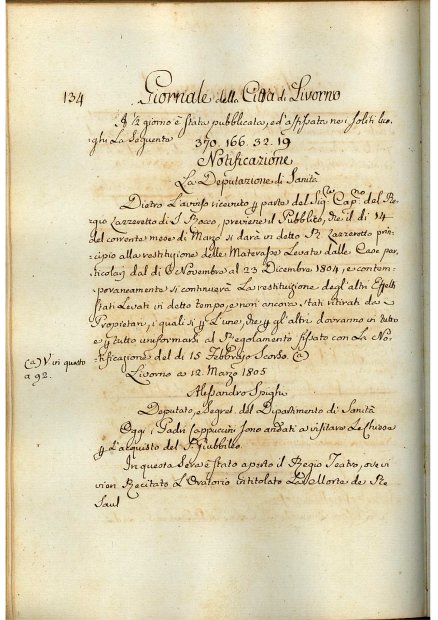 134
Giornale della Città di Livorno
A 1/2 giorno è stata pubblicata, ed affissata nei soliti luo-
ghi La Seguente 370. 166. 32. 19
Notificazione
La Deputazione di Sanità
Dietro L'avviso ricevuto p parte del Sig.re Cap.no del Re-
gio Lazzeretto di S. Rocco, previene il Pubblico, che il di 14
del corrente mese di Marzo si darà in detto R. Lazzeretto prin-
cipio alla restituzione delle Materasse Levate dalle Case par-
ticolari dal dì 6 Novembre al 23 Dicembre 1804, e contem-
poraneamente si continuerà La restituzione degl'altri Effetti
stati Levati in detto tempo, e non ancora stati ritirati da
Proprietari, i quali sì p L'une, che p gl'altri dovranno in tutto
e p tutto uniformarsi al Regolamento fissato con La No-
tificazione del dì 15 Febbrajo Scorso. (a)
(a) V. in questo
a 92.
Livorno a 12. Marzo 1805
Alessandro Spighi
Deputato, e Segret. del Dipartimento di Sanità
Oggi i Padri Cappuccini sono andati a visitare Le Chiese
p L'acquisto del S. Giubbileo.
In questa Sera è stato aperto il Regio Teatro, ove vi
vien Recitato L'Oratorio intitolato La Morte de Re
Saul